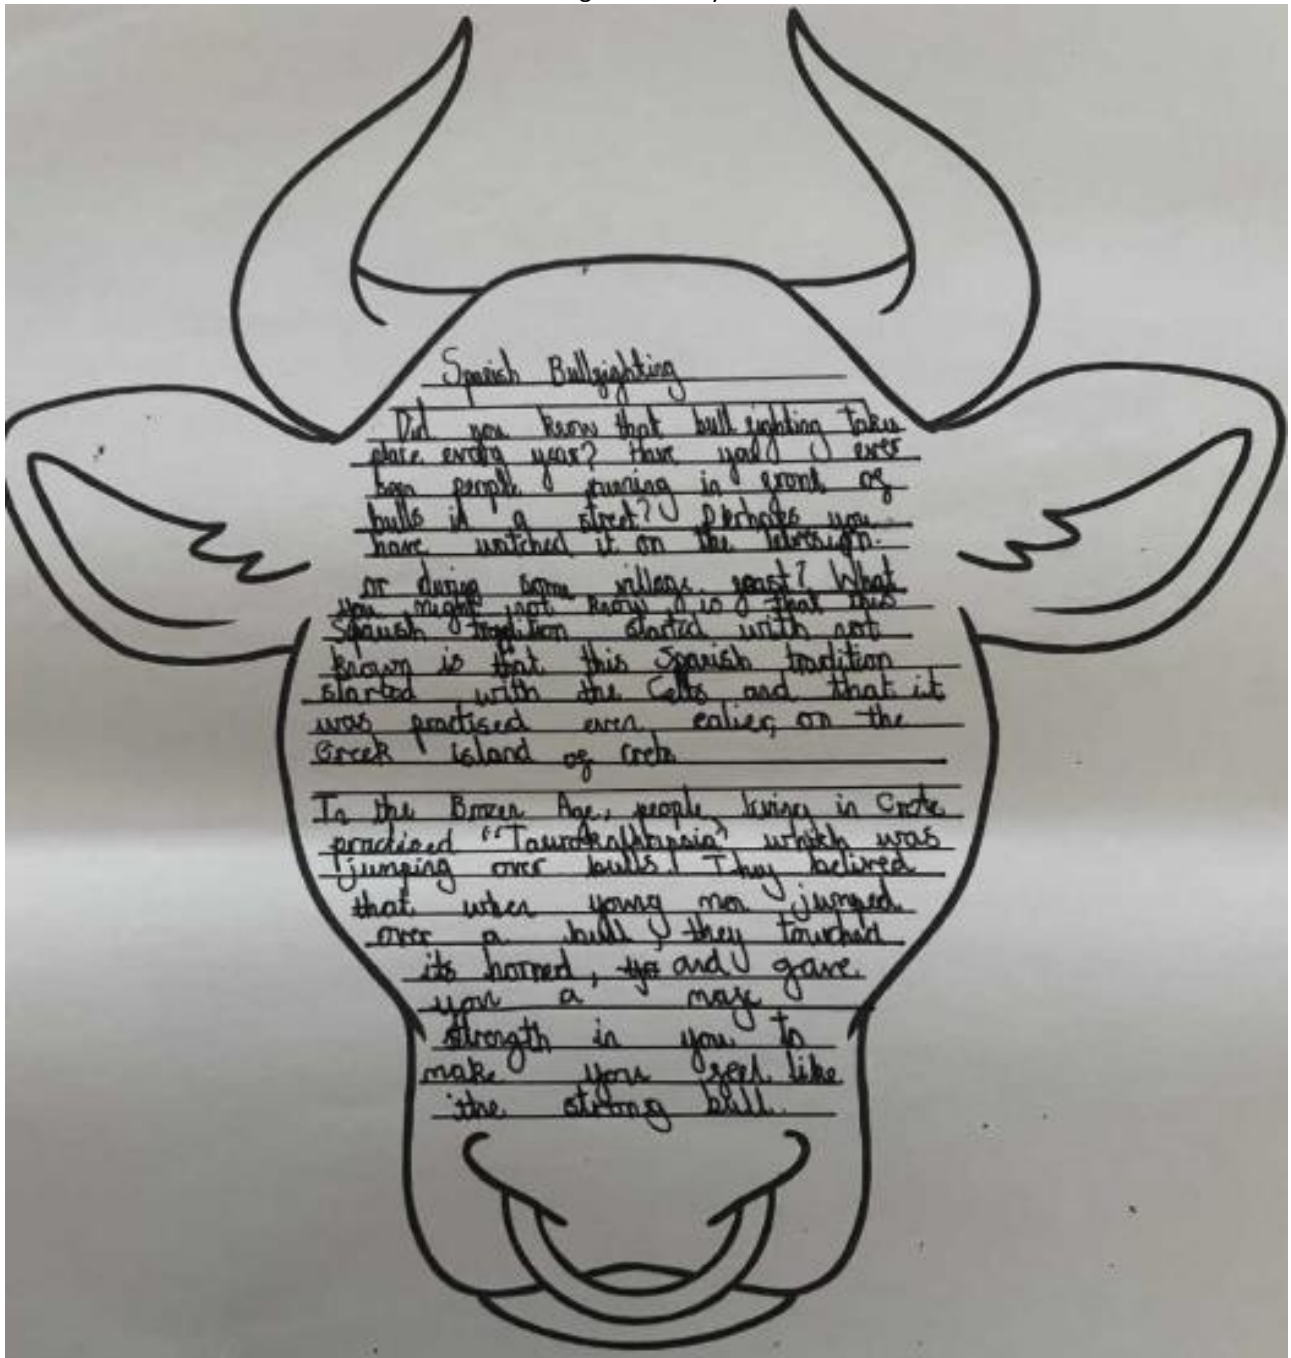 Spanish Bullfighting
Did you know that bull fighting takes
place every year? Have you ever
seen people runing in front of
bulls in a street? Perhaps you
have watched it on the
or during some village feast? What
you might not know is that this
Spanish tradition started with not
known is that this Spanish tradition
started with the Celts and that it
was practised even ealier, on the
Greek island of Crete
In the Bronze Age, people living in Crete
practised which was
jumping over bulls! They belived
that when young men jumped
over a bull, they touched
its horned, and gave
you a
strength in you to
make you feel like
the strong bull.